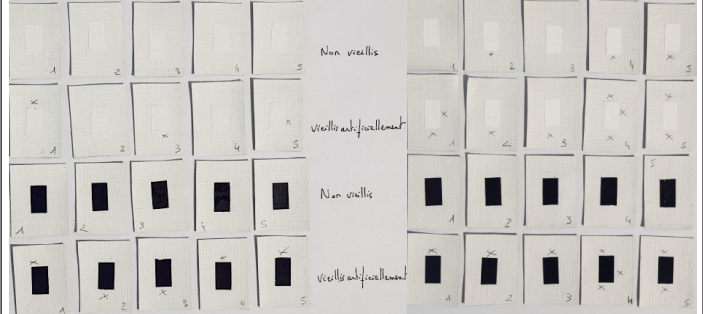 1 2 3 4 5 Non vieillis 1 2 3 4 5
1 2 3 4 5 vieillis artificiellement 1 2 3 4 5
1 2 3 4 5 Non vieillis 1 2 3 4 5
1 2 3 4 5 vieillis artificiellement 1 2 3 4 5